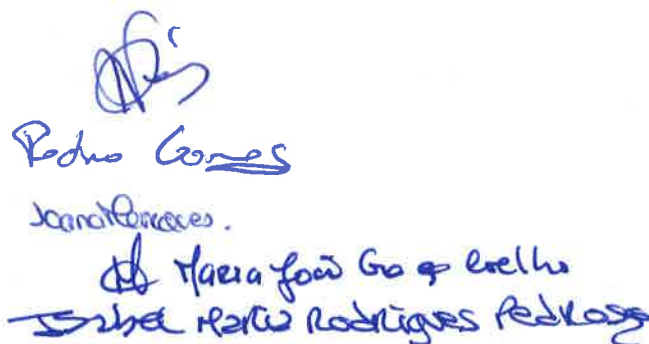 Pedro Gomes
Joana
Maria João Coelho
Isabel Maria Rodrigues Pedrosa